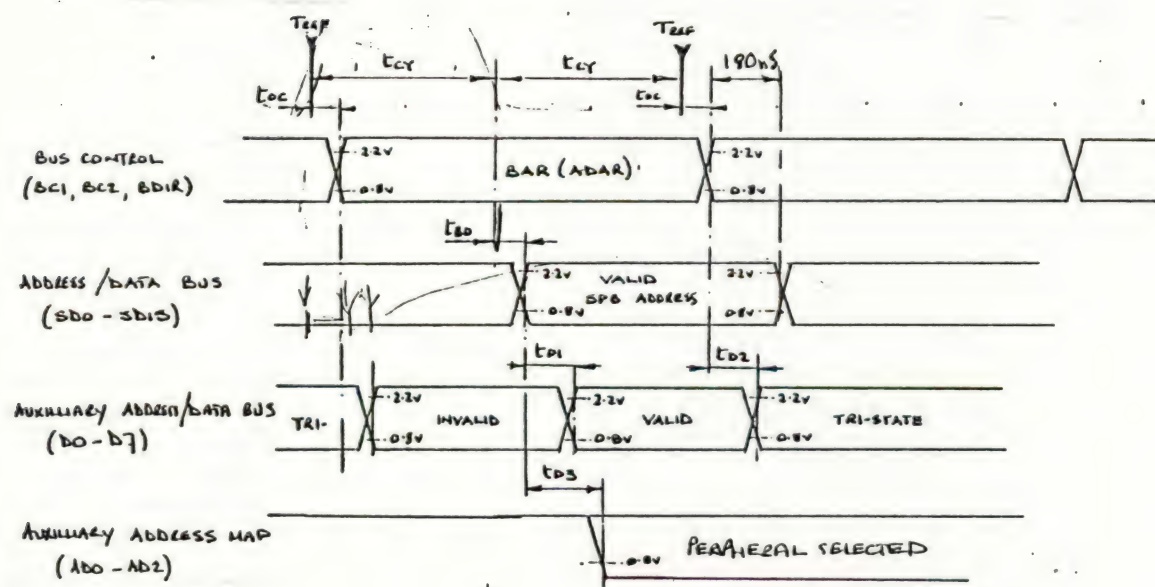 TREF
TREF
tCY
tCY
180nS
tOC
tOC
BUS CONTROL
(BC1, BC2, BDIR)
2.2V
BAR (ADAR)
2.2V
0.8V
0.8V
tBD
ADDRESS/DATA BUS
(SD0 - SD15)
2.2V
VALID
SPB ADDRESS
2.2V
0.8V
0.8V
tD1
tD2
AUXILLIARY ADDRESS/DATA BUS
(D0 - D7)
TRI-
2.2V
INVALID
0.8V
2.2V
VALID
0.8V
2.2V
TRI-STATE
0.8V
tD3
AUXILLIARY ADDRESS MAP
(AD0 - AD2)
0.8V
PERPHERAL SELECTED